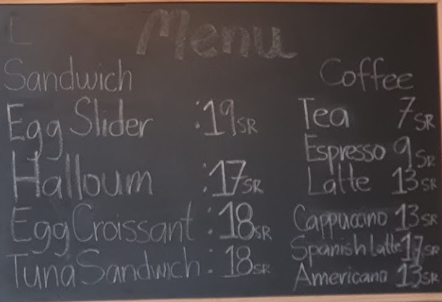 Menu
Sandwich
Egg Slider :19SR
Halloum :17SR
Egg Croissant :18SR
Tuna Sandwich. 18SR
Coffee
Tea 7SR
Espresso 9SR
Latte 13SR
Cappuccino 13SR
Spanish latte 17SR
Americano 13SR